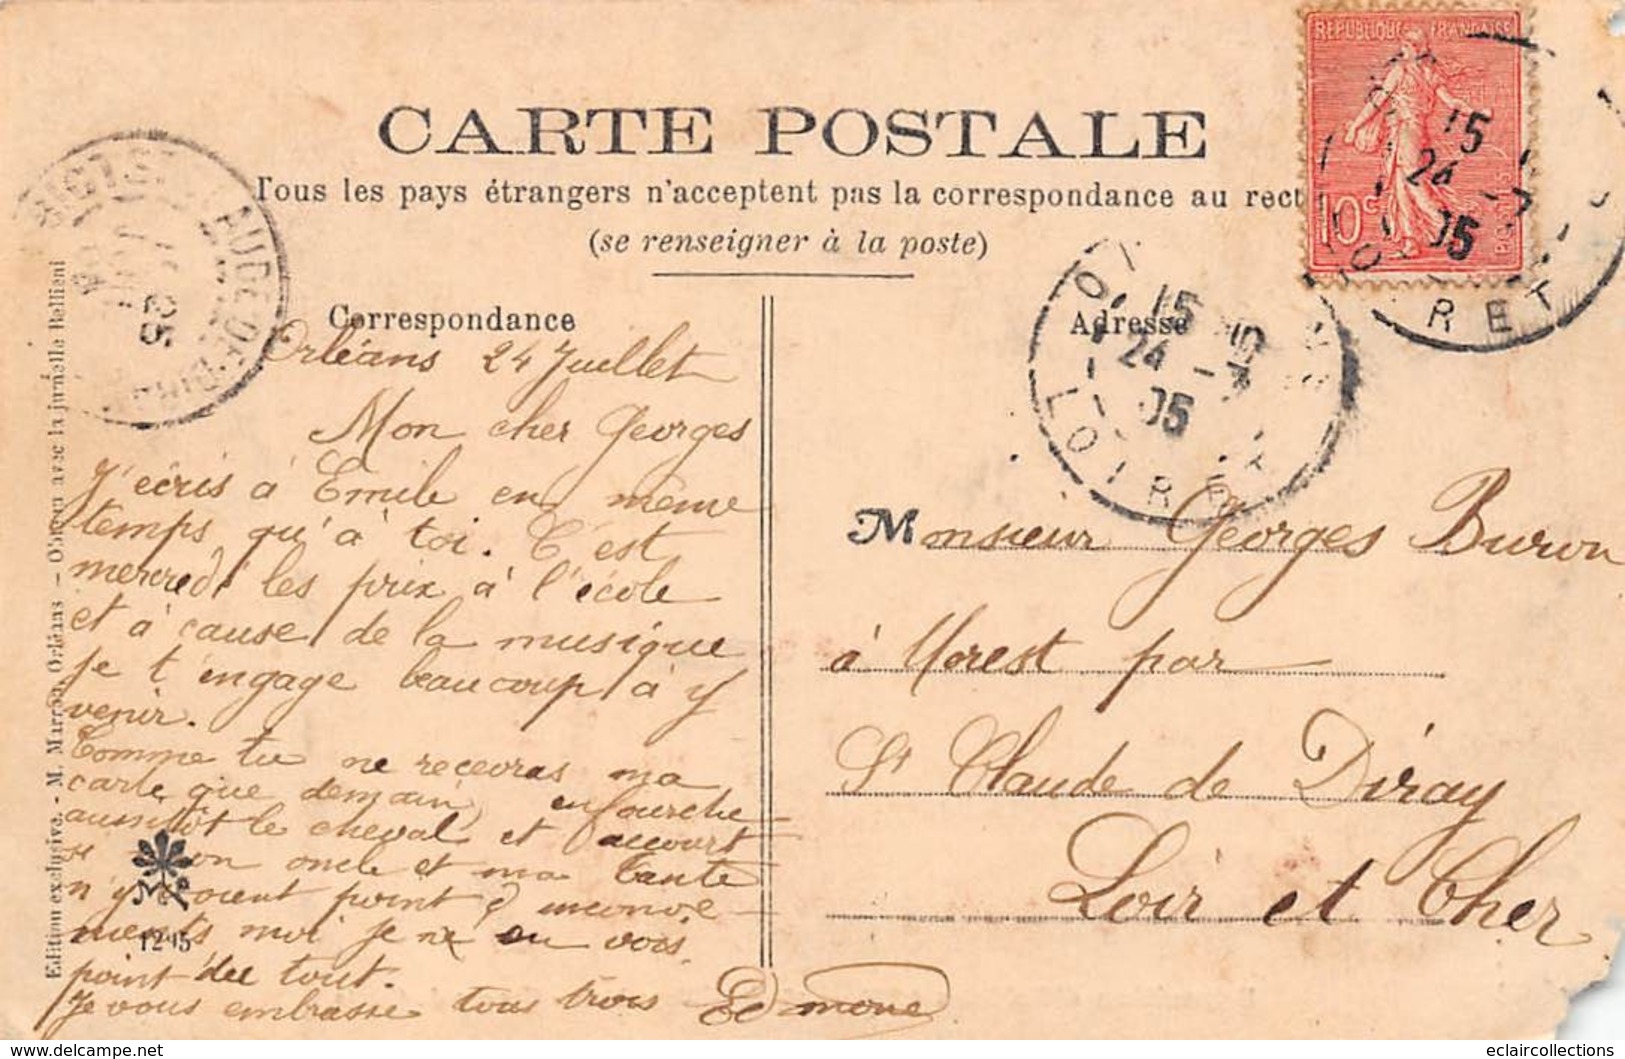 CARTE POSTALE
Tous les pays étrangers n'acceptent pas la correspondance au rect
(se renseigner à la poste)
REPUBLIQUE FRANÇAISE
10c
15
24 -7
05
LOIRET
15
24 -7
05
LOIRET
Correspondance
Adresse
Orléans 24 Juillet
Mon cher Georges
J'écris à Emile en même
temps qu'à toi. C'est
mercredi les prix à l'école
et à cause de la musique
je t'engage beaucoup à y
venir.
Comme tu ne recevras ma
carte que demain, enfourche
aussitôt le cheval et accourt
si mon oncle et ma tante
n'y voient point d'inconvé-
nients moi je n'en vois
point du tout.
Je vous embrasse tous trois Edmone
Monsieur Georges Buron
à Morest par
St Claude de Diray
Loir et Cher
Edition exclusive. - M. Marron, Orléans - Obtenu avec la jumelle Bellieni
eclaircollections